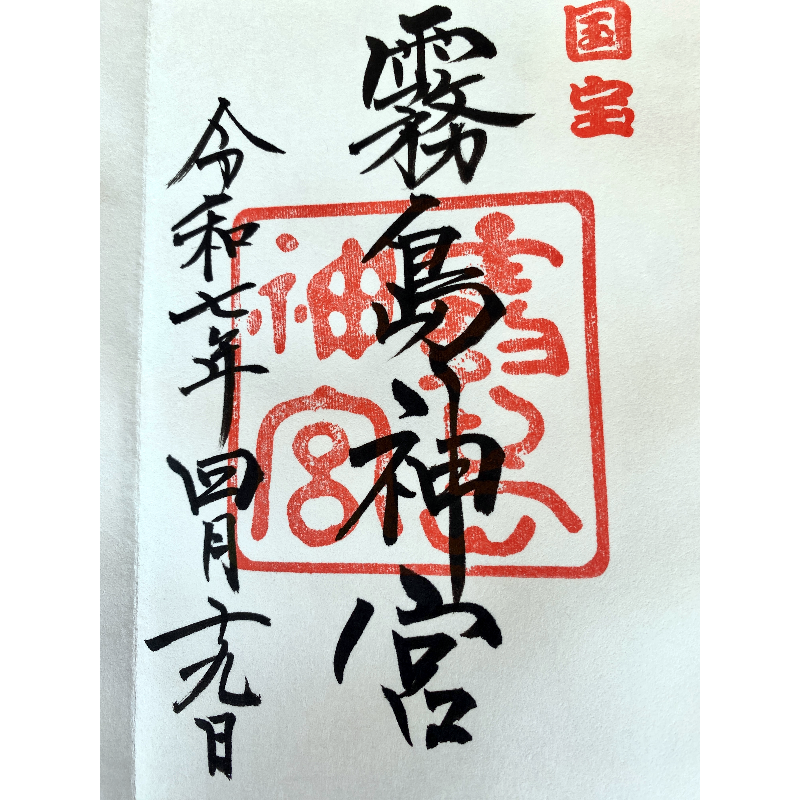 国宝
霧島神宮
霧島神宮
令和七年四月十九日